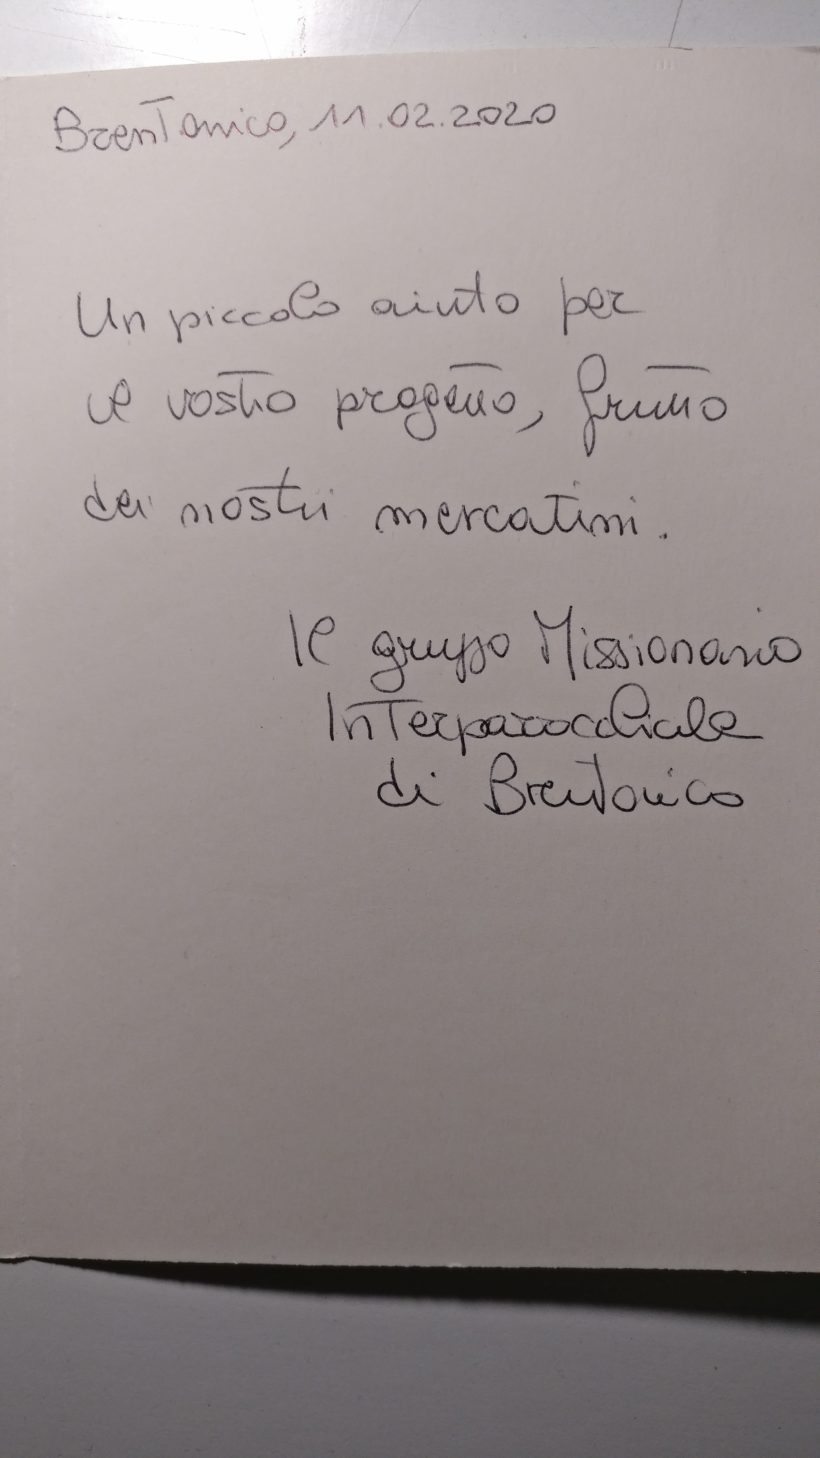 Brentonico, 11.02.2020
Un piccolo aiuto per
il vostro progetto, frutto
dei nostri mercatini.
Il gruppo Missionario
Interparrocchiale
di Brentonico